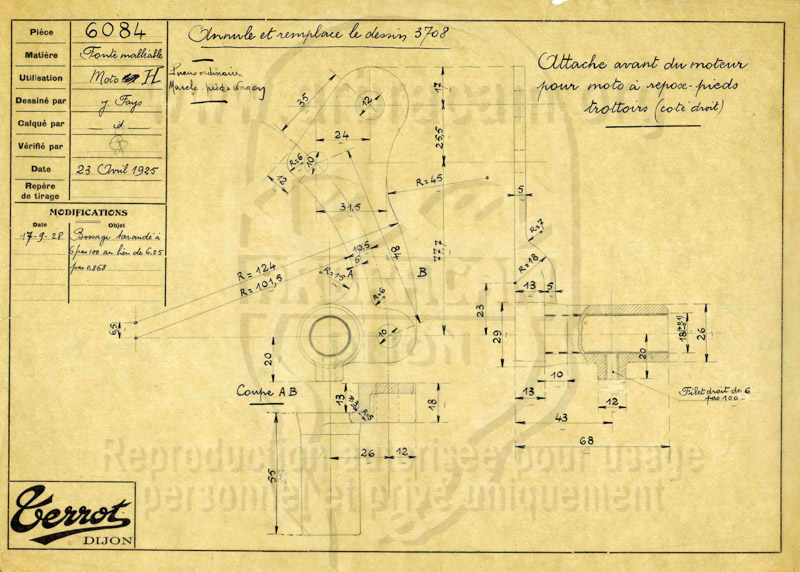 Pièce 6084
Matière Fonte malléable
Utilisation Moto H
Dessiné par J Fays
Calqué par id.
Vérifié par
Date 23 Avril 1925
Repère
de tirage
MODIFICATIONS
Date Objet
17-9-28 Bossage taraudé à
6 pas 100 au lieu de 6.25
pas 0,868
Annule et remplace le dessin 3708
Pneus ordinaire
Marche pieds
Attache avant du moteur
pour moto à repose-pieds
trottoirs (coté droit)
35
12
24
17
25,5
R=6
10
12
R=45
5
31,5
R=7
R=124
R=101,5
10,5
6
84
77,7
R=15
A
B
R=18
R=6
13 5
23
6,5
10
29
20
18
26
20
10
Coupe AB
13
18
13
12
Filet droit de 6
pas 100
43
R=5
26 12
68
55
Reproduction autorisée pour usage
personnel et privé uniquement
Terrot
DIJON